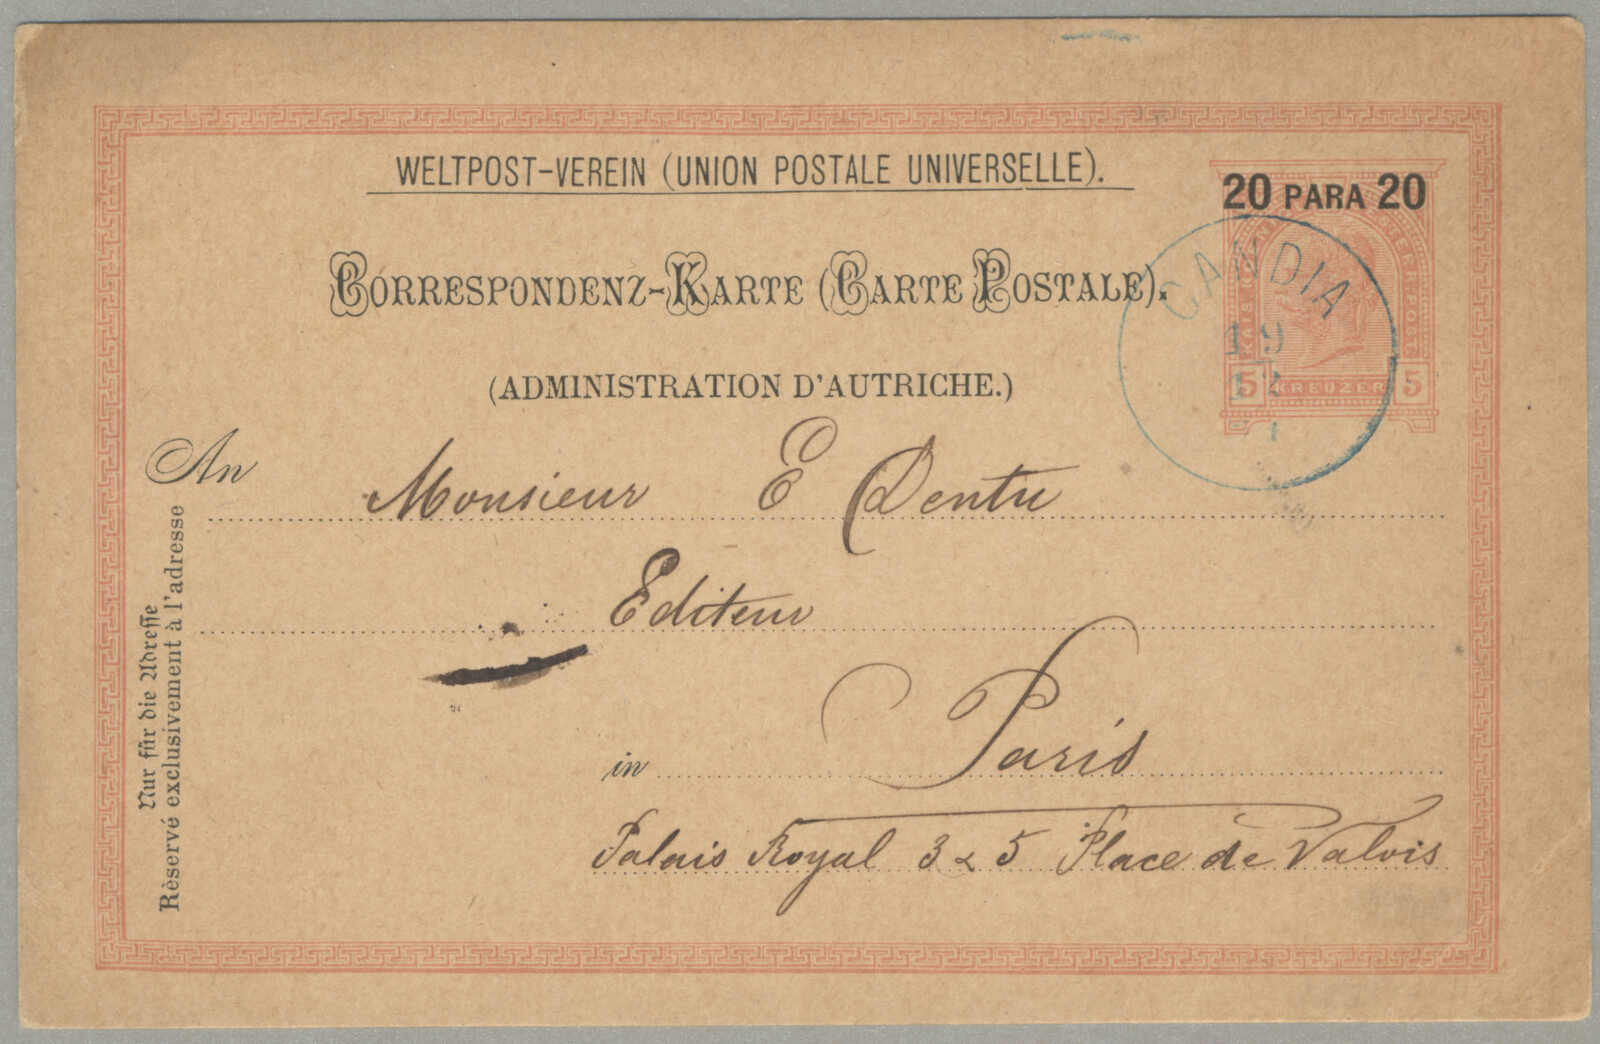 WELTPOST-VEREIN (UNION POSTALE UNIVERSELLE).
20 PARA 20
CORRESPONDENZ-KARTE (CARTE POSTALE).
CANDIA
19
12
5 KREUZER 5
(ADMINISTRATION D'AUTRICHE.)
An Monsieur E Dentu
Editeur
in Paris
Palais Royal 3 & 5 Place de Valois
Nur für die Adresse
Réservé exclusivement à l'adresse